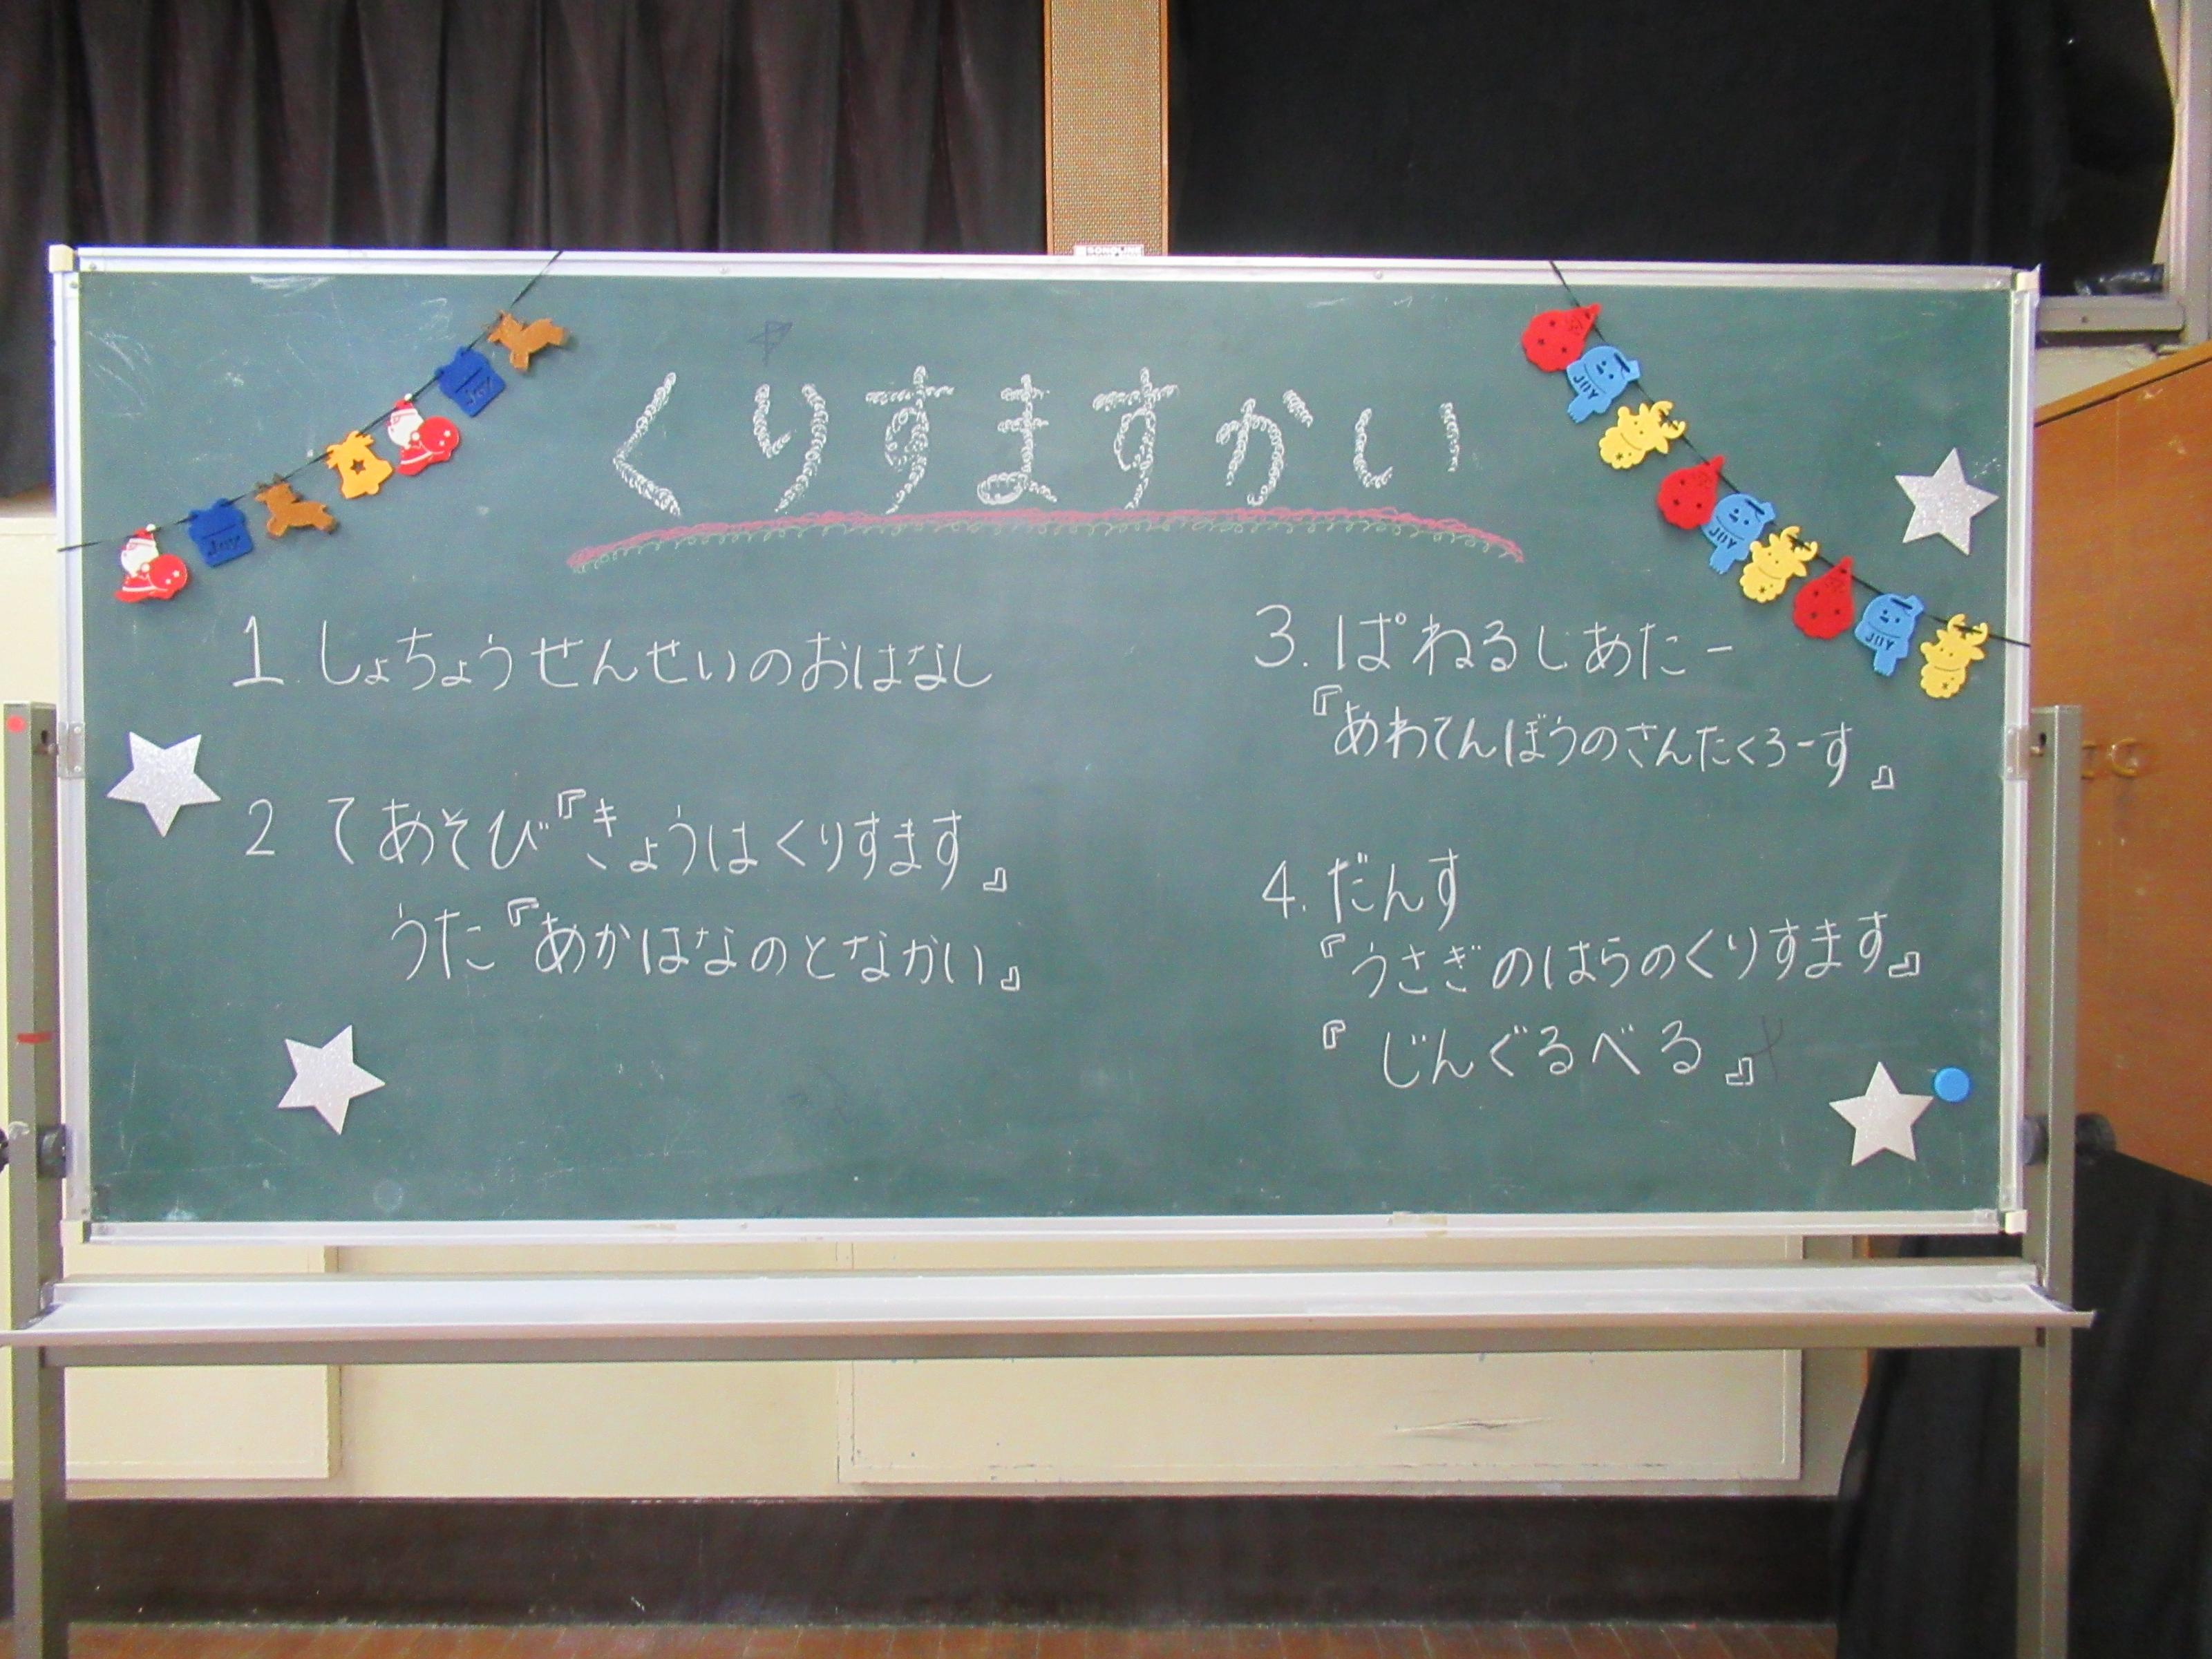 くりすますかい
1.しょちょうせんせいのおはなし
2 てあそび『きょうはくりすます』
うた『あかはなのとなかい』
3.ぱねるしあたー
『あわてんぼうのさんたくろーす』
4.だんす
『うさぎのはらのくりすます』
『じんぐるべる』
JOY
JOY
JOY
JOY
JOY